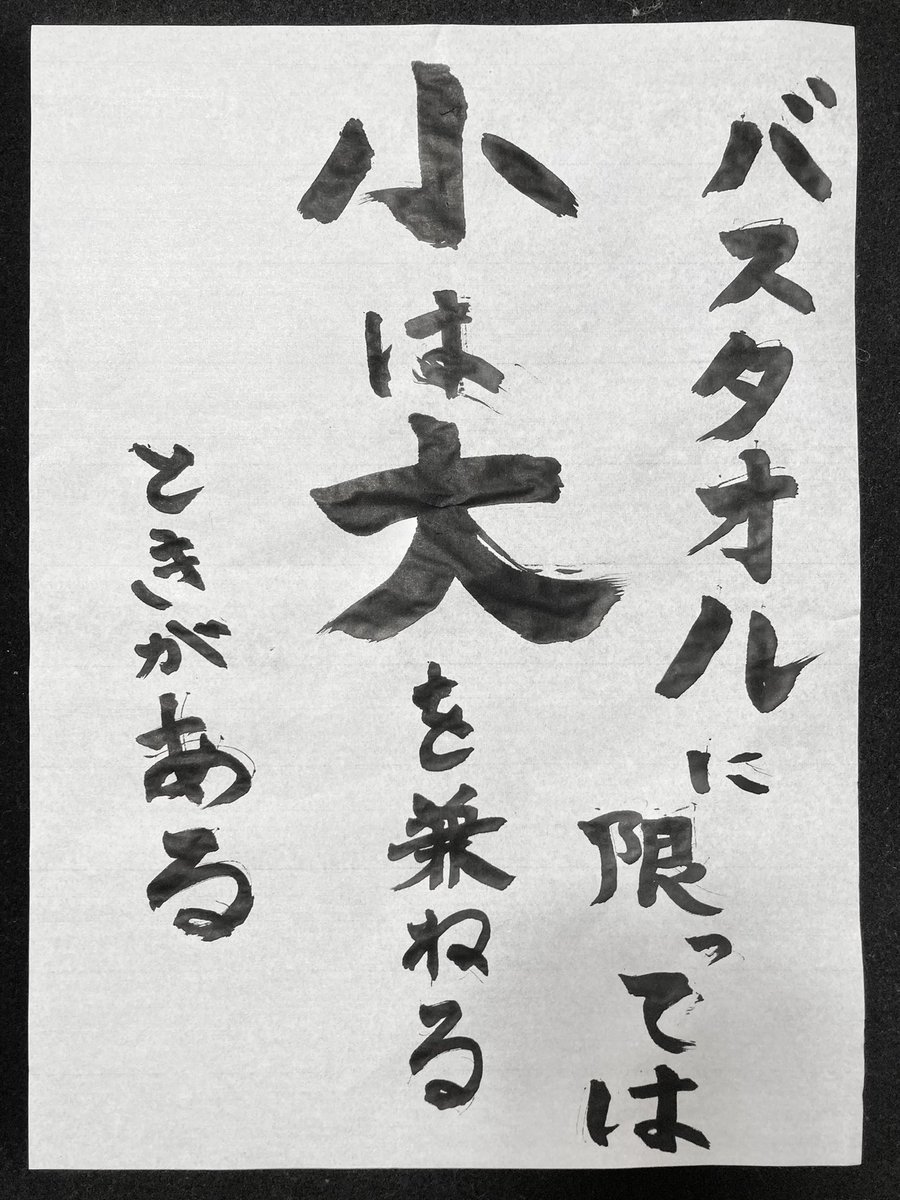 バスタオルに限っては
小は大を兼ねる
ときがある